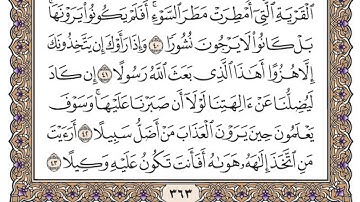 ٱلۡقَرۡيَةِ ٱلَّتِيٓ أُمۡطِرَتۡ مَطَرَ ٱلسَّوۡءِۚ أَفَلَمۡ يَكُونُواْ يَرَوۡنَهَاۚ
بَلۡ كَانُواْ لَا يَرۡجُونَ نُشُورٗا ٤٠ وَإِذَا رَأَوۡكَ إِن يَتَّخِذُونَكَ
إِلَّا هُزُوًا أَهَٰذَا ٱلَّذِي بَعَثَ ٱللَّهُ رَسُولًا ٤١ إِن كَادَ
لَيُضِلُّنَا عَنۡ ءَالِهَتِنَا لَوۡلَآ أَن صَبَرۡنَا عَلَيۡهَاۚ وَسَوۡفَ
يَعۡلَمُونَ حِينَ يَرَوۡنَ ٱلۡعَذَابَ مَنۡ أَضَلُّ سَبِيلًا ٤٢ أَرَءَيۡتَ
مَنِ ٱتَّخَذَ إِلَٰهَهُۥ هَوَىٰهُ أَفَأَنتَ تَكُونُ عَلَيۡهِ وَكِيلًا ٤٣
٣٦٣